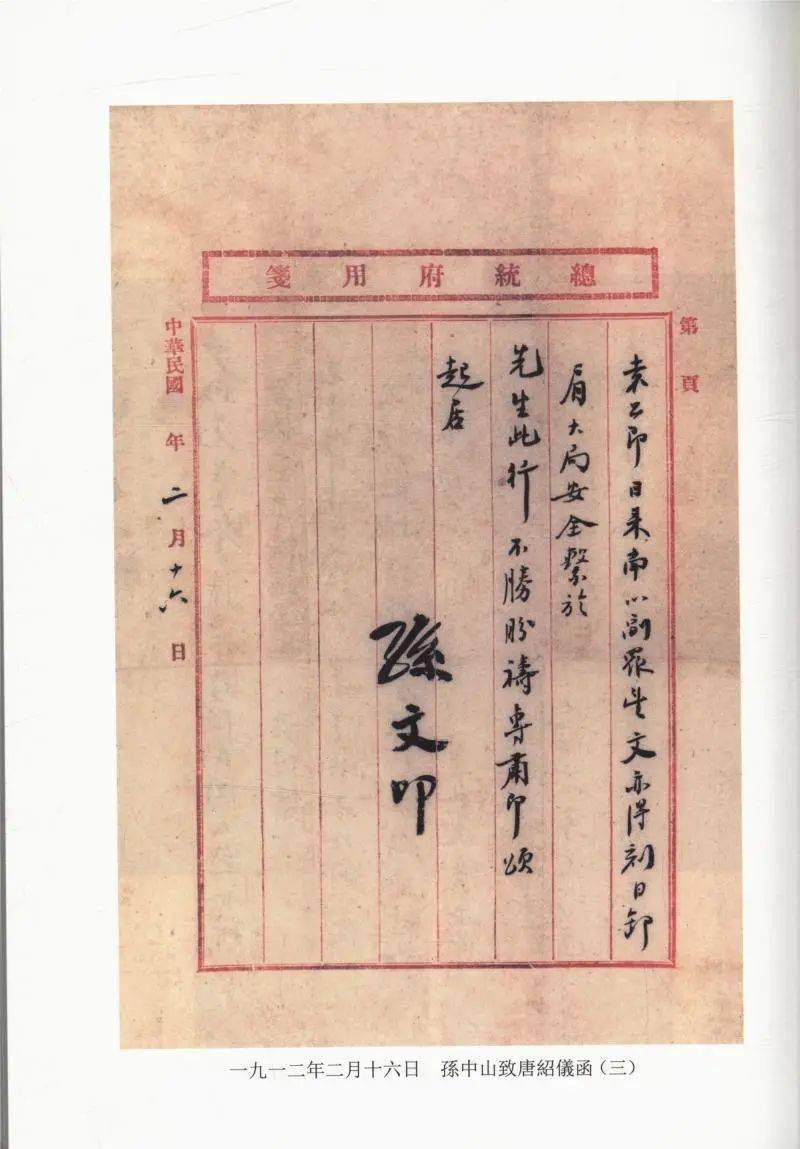 總統府用箋
第 頁
袁公即日来南以副眾望文亦得刻日卸
肩大局安全繫於
先生此行不勝盼禱專肅即頌
起居
孫文叩
中華民國 年 二月十六日
一九一二年二月十六日 孫中山致唐紹儀函（三）